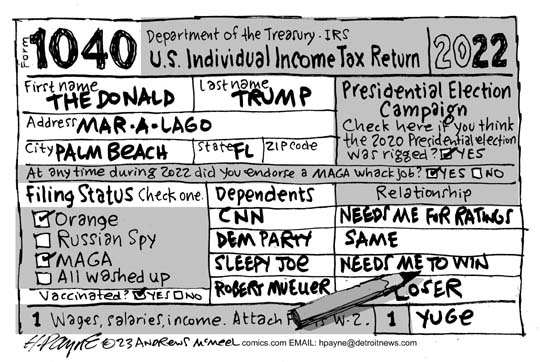 Form 1040 Department of the Treasury · IRS
U.S. Individual Income Tax Return 2022
First name Last name
THE DONALD TRUMP
Address MAR·A·LAGO
City PALM BEACH State FL ZIP Code
Presidential Election
Campaign
Check here if you think
the 2020 Presidential election
was rigged? YES
At any time during 2022 did you endorse a MAGA whack job? YES NO
Filing Status Check one.
Orange
Russian Spy
MAGA
All washed up
Vaccinated? YES NO
Dependents Relationship
CNN NEEDS ME FOR RATINGS
DEM PARTY SAME
SLEEPY JOE NEEDS ME TO WIN
ROBERT MUELLER LOSER
1 Wages, salaries, income. Attach W-2. 1 YUGE
HPAYNE ©23 ANDREWS McMEEL comics.com EMAIL: hpayne@detroitnews.com